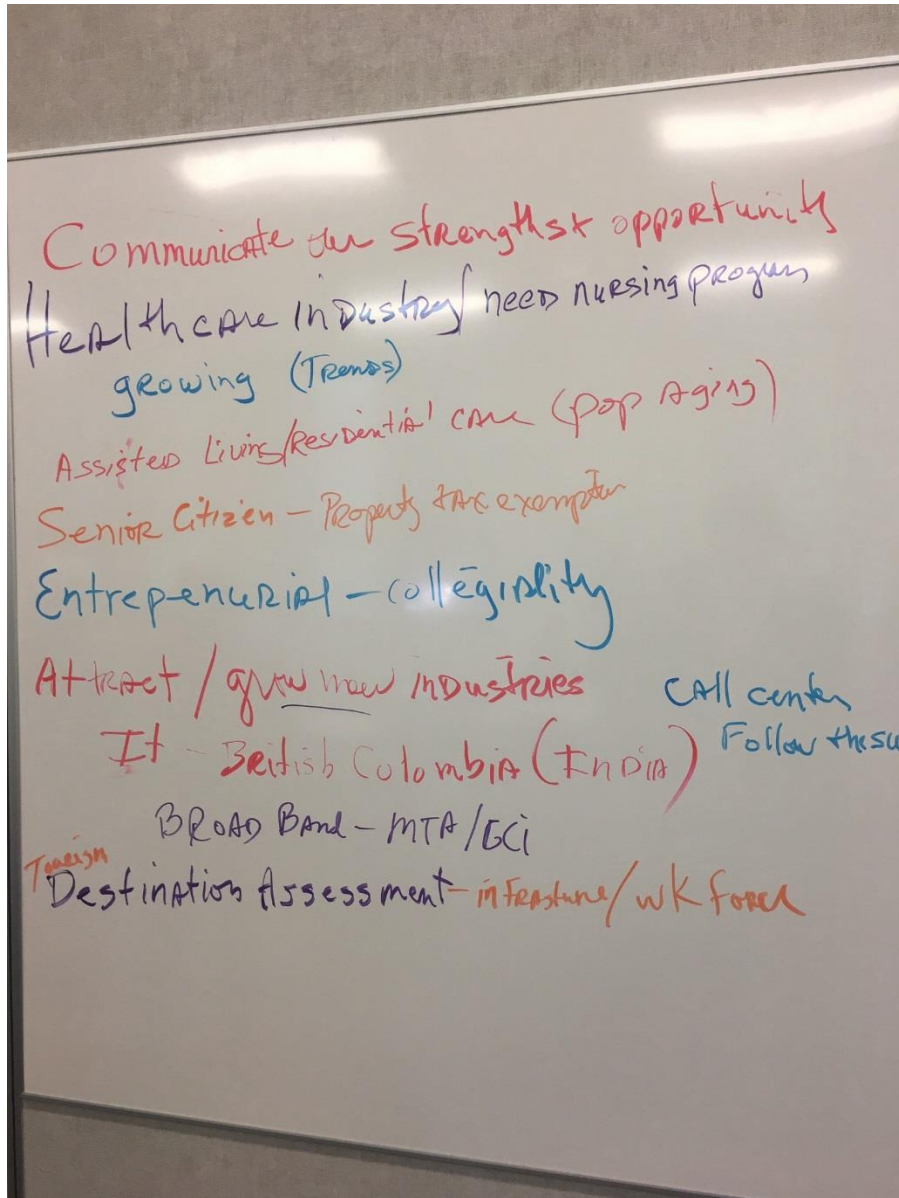 Communicate our strengths & opportunity
Healthcare industry / need nursing program
growing (Trends)
Assisted Living/Residential care (pop Aging)
Senior Citizen - Property tax exemption
Entrepenurial - collegiality
Attract / grow new industries
It - British Colombia (India)
Call center
Follow the su
Broad Band - MTA/GCi
Tourism
Destination Assessment - infrastune/wk force